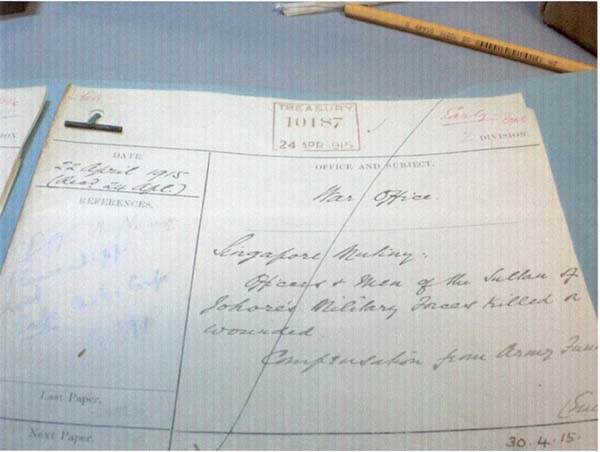 TREASURY
10187
24 APR 1915
Early
2 DIVISION.
DATE.
22 April 1915
(recd 24 Apl.)
REFERENCES.
OFFICE AND SUBJECT.
War Office.
Singapore Mutiny:
Officers & Men of the Sultan of
Johore's Military Forces killed or
wounded
Compensation from Army Fun
Last Paper.
Next Paper.
30.4.15.